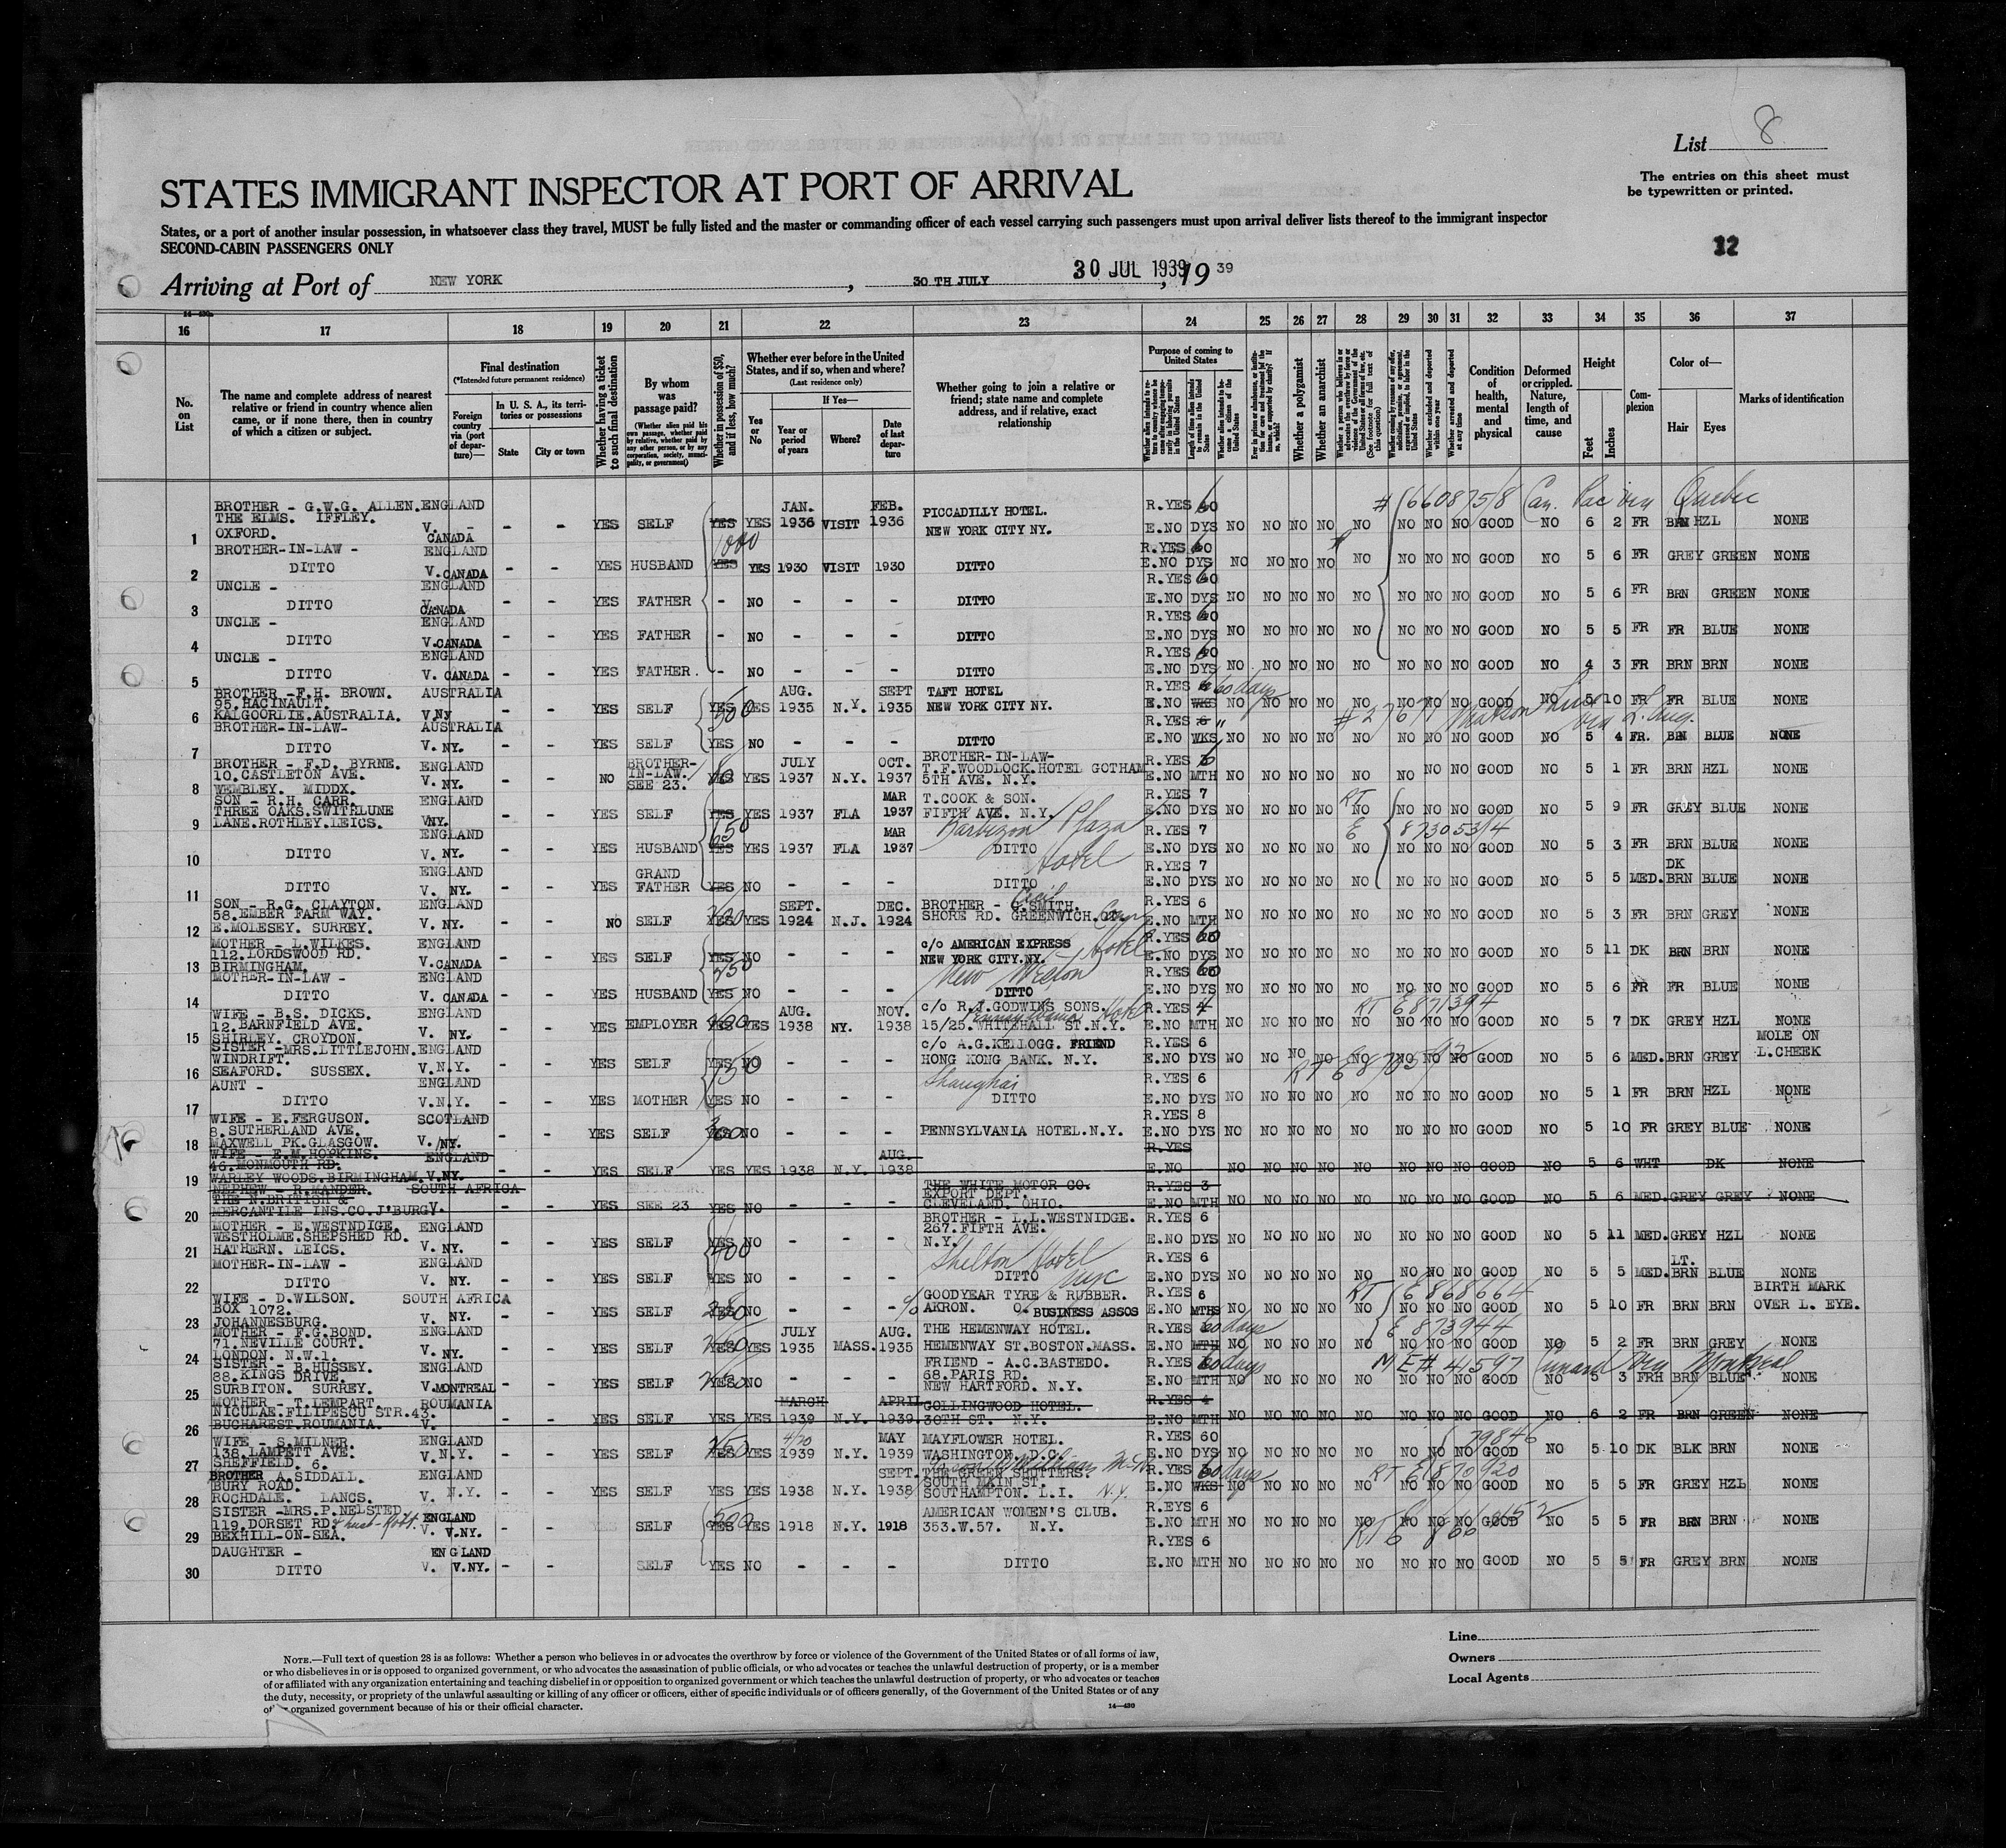 List 8
STATES IMMIGRANT INSPECTOR AT PORT OF ARRIVAL
The entries on this sheet must
be typewritten or printed.
States, or a port of another insular possession, in whatsoever class they travel, MUST be fully listed and the master or commanding officer of each vessel carrying such passengers must upon arrival deliver lists thereof to the immigrant inspector
SECOND-CABIN PASSENGERS ONLY
32
Arriving at Port of NEW YORK, 30TH JULY 30 JUL 1939, 19 39
16 17 18 19 20 21 22 23 24 25 26 27 28 29 30 31 32 33 34 35 36 37
No. on List
The name and complete address of nearest relative or friend in country whence alien came, or if none there, then in country of which a citizen or subject.
Final destination
(*Intended future permanent residence)
Foreign country via (port of departure)—
In U. S. A., its territories or possessions
State
City or town
Whether having a ticket to such final destination
By whom was passage paid?
(Whether alien paid his own passage, whether paid by relative, whether paid by any other person, or by any corporation, society, municipality, or government)
Whether in possession of $50, and if less, how much?
Whether ever before in the United States, and if so, when and where?
(Last residence only)
Yes or No
If Yes—
Year or period of years
Where?
Date of last departure
Whether going to join a relative or friend; state name and complete address, and if relative, exact relationship
Purpose of coming to United States
Length of time alien intends to remain in the United States
Whether alien intends to become a citizen of the United States
Whether a polygamist
Whether an anarchist
Whether excluded and deported within one year
Whether arrested and deported at any time
Condition of health, mental and physical
Deformed or crippled. Nature, length of time, and cause
Height
Feet
Inches
Complexion
Color of—
Hair
Eyes
Marks of identification
1 BROTHER - G.W.G. ALLEN. THE ELMS. IFFLEY. OXFORD. ENGLAND V. CANADA - - YES SELF YES 1000 YES JAN. 1936 VISIT FEB. 1936 PICCADILLY HOTEL. NEW YORK CITY NY. R.YES 60 E.NO DYS NO NO NO NO NO NO NO NO GOOD NO 6 2 FR BRN HZL NONE
# 660875/8 Can. Pac via Quebec
2 BROTHER-IN-LAW - DITTO ENGLAND V. CANADA - - YES HUSBAND YES YES 1930 VISIT 1930 DITTO R.YES 60 E.NO DYS NO NO NO NO NO NO NO NO GOOD NO 5 6 FR GREY GREEN NONE
3 UNCLE - DITTO ENGLAND V. CANADA - - YES FATHER - NO - - - DITTO R.YES 60 E.NO DYS NO NO NO NO NO NO NO NO GOOD NO 5 6 FR BRN GREEN NONE
4 UNCLE - DITTO ENGLAND V. CANADA - - YES FATHER - NO - - - DITTO R.YES 60 E.NO DYS NO NO NO NO NO NO NO NO GOOD NO 5 5 FR FR BLUE NONE
5 UNCLE - DITTO ENGLAND V. CANADA - - YES FATHER. - NO - - - DITTO R.YES 60 E.NO DYS NO NO NO NO NO NO NO NO GOOD NO 4 3 FR BRN BRN NONE
6 BROTHER -F.H. BROWN. 95. HACINAULT. KALGOORLIE.AUSTRALIA. AUSTRALIA V.Ny - - YES SELF YES 500 YES AUG. 1935 N.Y. SEPT 1935 TAFT HOTEL NEW YORK CITY NY. R.YES 6 60 days E.NO WKS NO NO NO NO NO NO NO NO GOOD NO 5 10 FR FR BLUE NONE
#27671 Matson Line via L. Ang.
7 BROTHER-IN-LAW- DITTO AUSTRALIA V. NY. - - YES SELF YES NO - - - DITTO R.YES 6 " E.NO WKS NO NO NO NO NO NO NO NO GOOD NO 5 4 FR. BRN BLUE NONE
8 BROTHER - F.D. BYRNE. 10.CASTLETON AVE. WEMBLEY. MIDDX. ENGLAND V. NY. - - NO BROTHER-IN-LAW. SEE 23. YES JULY 1937 N.Y. OCT. 1937 BROTHER-IN-LAW- T.F.WOODLOCK.HOTEL GOTHAM 5TH AVE. N.Y. R.YES 6 E.NO MTH NO NO NO NO NO NO NO NO GOOD NO 5 1 FR BRN HZL NONE
9 SON - R.H. CARR. THREE OAKS.SWITHLUNE LANE.ROTHLEY.LEICS. ENGLAND V.NY. - - YES SELF YES 650 YES 1937 FLA MAR 1937 T.COOK & SON. FIFTH AVE. N.Y. R.YES 7 E.NO DYS NO NO NO NO NO NO NO NO GOOD NO 5 9 FR GREY BLUE NONE
Barbizon Plaza Hotel RT E 873053/4
10 DITTO ENGLAND V. NY. - - YES HUSBAND YES YES 1937 FLA MAR 1937 DITTO R.YES 7 E.NO DYS NO NO NO NO NO NO NO NO GOOD NO 5 3 FR BRN BLUE NONE
11 DITTO ENGLAND V. NY. - - YES GRAND FATHER YES NO - - - DITTO R.YES 7 E.NO DYS NO NO NO NO NO NO NO NO GOOD NO 5 5 MED. DK BRN BLUE NONE
12 SON - R.G. CLAYTON. 58.EMBER FARM WAY. E.MOLESEY. SURREY. ENGLAND V. NY. - - NO SELF YES YES SEPT. 1924 N.J. DEC. 1924 BROTHER - G.SMITH. Cecil SHORE RD. GREENWICH. Conn R.YES 6 E.NO MTH NO NO NO NO NO NO NO NO GOOD NO 5 3 FR BRN GREY NONE
13 MOTHER - L.WILKES. 112.LORDSWOOD RD. BIRMINGHAM. ENGLAND V.CANADA - - YES SELF YES 750 NO - - - c/o AMERICAN EXPRESS NEW YORK CITY.NY. R.YES 60 E.NO DYS NO NO NO NO NO NO NO NO GOOD NO 5 11 DK BRN BRN NONE
New Weston Hotel
14 MOTHER-IN-LAW - DITTO ENGLAND V. CANADA - - YES HUSBAND YES NO - - - DITTO R.YES 60 E.NO DYS NO NO NO NO NO NO NO NO GOOD NO 5 6 FR FR BLUE NONE
15 WIFE - B.S. DICKS. 12.BARNFIELD AVE. SHIRLEY. CROYDON. ENGLAND V. NY. - YES EMPLOYER YES YES AUG. 1938 NY. NOV. 1938 c/o R.J.GODWINS SONS. Pennsylvania Hotel 15/25.WHITEHALL ST.N.Y. R.YES 4 E.NO MTH NO NO NO NO NO NO NO NO GOOD NO 5 7 DK GREY HZL NONE
RT E 871394
16 SISTER -MRS.LITTLEJOHN. WINDRIFT. SEAFORD. SUSSEX. ENGLAND V.N.Y. - - YES SELF YES 750 NO - - - c/o A.G.KELLOGG. FRIEND HONG KONG BANK. N.Y. R.YES 6 E.NO DYS NO NO NO NO NO NO NO NO GOOD NO 5 6 MED. BRN GREY MOLE ON L.CHEEK
Shanghai
17 AUNT - DITTO ENGLAND V.N.Y. - - YES MOTHER YES NO - - - DITTO R.YES 6 E.NO DYS NO NO NO NO NO NO NO NO GOOD NO 5 1 FR BRN HZL NONE
18 WIFE - E.FERGUSON. 8.SUTHERLAND AVE. MAXWELL PK.GLASGOW. SCOTLAND V. NY. - - YES SELF YES 300 NO - - - PENNSYLVANIA HOTEL.N.Y. R.YES 8 E.NO DYS NO NO NO NO NO NO NO NO GOOD NO 5 10 FR GREY BLUE NONE
19 WIFE - E.M.HOPKINS. 46.MONMOUTH RD. WARLEY WOODS.BIRMINGHAM. ENGLAND V.NY. - - YES SELF YES YES 1938 N.Y. AUG. 1938 R.YES E.NO NO NO NO NO NO NO NO NO GOOD NO 5 6 WHT DK NONE
20 NEPHEW - R.MANDER. THE N.BRITISH & MERCANTILE INS.CO.J'BURG SOUTH AFRICA V. - - YES SEE 23 YES NO - - - THE WHITE MOTOR CO. EXPORT DEPT. CLEVELAND. OHIO. R.YES 3 E.NO MTH NO NO NO NO NO NO NO NO GOOD NO 5 6 MED. GREY GREY NONE
21 MOTHER - E.WESTNDIGE. WESTHOLME.SHEPSHED RD. HATHERN. LEICS. ENGLAND V. NY. - - YES SELF YES 400 NO - - - BROTHER - L.L.WESTNIDGE. 267.FIFTH AVE. N.Y. R.YES 6 E.NO DYS NO NO NO NO NO NO NO NO GOOD NO 5 11 MED. GREY HZL NONE
Shelton Hotel NYC
22 MOTHER-IN-LAW - DITTO ENGLAND V. NY. - - YES SELF YES NO - - - DITTO R.YES 6 E.NO DYS NO NO NO NO NO NO NO NO GOOD NO 5 5 MED. LT. BRN BLUE NONE
23 WIFE - D.WILSON. BOX 1072. JOHANNESBURG. SOUTH AFRICA V. NY. - - YES SELF NO - - - c/o GOODYEAR TYRE & RUBBER. AKRON. O. BUSINESS ASSOS R.YES 6 E.NO MTHS NO NO NO NO NO NO NO NO GOOD NO 5 10 FR BRN BRN BIRTH MARK OVER L. EYE.
RT E 868664
E 873944
24 MOTHER - F.G.BOND. 71.NEVILLE COURT. LONDON. N.W.1. ENGLAND V. NY. - - YES SELF YES JULY 1935 MASS. AUG. 1935 THE HEMENWAY HOTEL. HEMENWAY ST.BOSTON.MASS. R.YES 60 days E.NO MTH NO NO NO NO NO NO NO NO GOOD NO 5 2 FR BRN GREY NONE
25 SISTER - B.HUSSEY. 88.KINGS DRIVE. SURBITON. SURREY. ENGLAND V.MONTREAL - - YES SELF YES NO - - - FRIEND - A.C.BASTEDO. 68.PARIS RD. NEW HARTFORD. N.Y. R.YES 60 days E.NO MTH NO NO NO NO NO NO NO NO GOOD NO 5 3 FRH BRN BLUE NONE
M E# 41597 Cunard Via Montreal
26 MOTHER - T.LEMPART. NICULAE.FILIPESCU STR.43. BUCHAREST.ROUMANIA. ROUMANIA V. - - YES SELF YES YES MARCH 1939 N.Y. APRIL 1939. COLLINGWOOD HOTEL. 30TH ST. N.Y. R.YES 4 E.NO MTH NO NO NO NO NO NO NO NO GOOD NO 6 2 FR BRN GREEN NONE
27 WIFE - S.MILNER. 138.LAMPETT AVE. SHEFFIELD. 6. ENGLAND V.N.Y. - - YES SELF YES YES 4/20 1939 N.Y. MAY 1939 MAYFLOWER HOTEL. WASHINGTON. D.C. R.YES 60 E.NO DYS NO NO NO NO NO NO NO NO GOOD NO 5 10 DK BLK BRN NONE
79846
28 BROTHER A.SIDDALL. BURY ROAD. ROCHDALE. LANCS. ENGLAND V. N.Y. - - YES SELF YES YES 1938 N.Y. SEPT. 1938 THE GREEN SHUTTERS. SOUTH MAIN ST. SOUTHAMPTON. L.I. N.Y. R.YES 60 days E.NO WKS NO NO NO NO NO NO NO NO GOOD NO 5 5 FR GREY HZL NONE
RT E 870920
29 SISTER -MRS.P.NELSTED 119.DORSET RD. BEXHILL-ON-SEA. ENGLAND V. V.NY. - - SELF YES 500 YES 1918 N.Y. 1918 AMERICAN WOMEN'S CLUB. 353.W.57. N.Y. R.EYS 6 E.NO MTH NO NO NO NO NO NO NO NO GOOD NO 5 5 FR BRN BRN NONE
30 DAUGHTER - DITTO ENGLAND V. V.NY. - - SELF YES NO - - - DITTO R.YES 6 E.NO MTH NO NO NO NO NO NO NO NO GOOD NO 5 5 FR GREY BRN NONE
Line
Owners
Local Agents
NOTE.—Full text of question 28 is as follows: Whether a person who believes in or advocates the overthrow by force or violence of the Government of the United States or of all forms of law,
or who disbelieves in or is opposed to organized government, or who advocates the assassination of public officials, or who advocates or teaches the unlawful destruction of property, or is a member
of or affiliated with any organization entertaining and teaching disbelief in or opposition to organized government or which teaches the unlawful destruction of property, or who advocates or teaches
the duty, necessity, or propriety of the unlawful assaulting or killing of any officer or officers, either of specific individuals or of officers generally, of the Government of the United States or of any
organized government because of his or their official character.
14—430